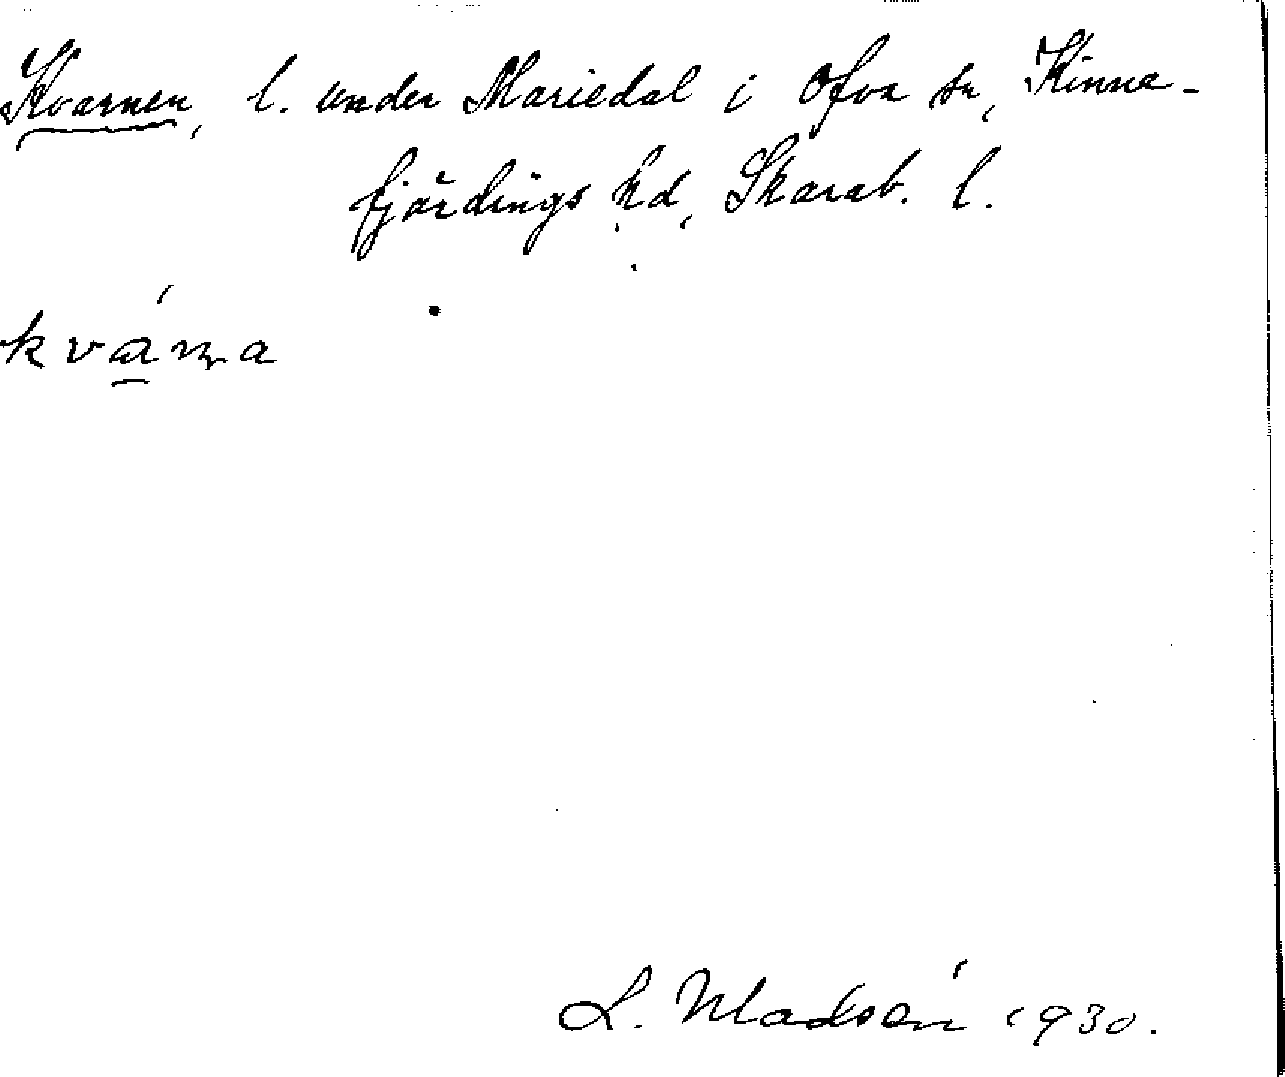 Kvarnen, l. under Mariedal i Ova sn, Kinne-
fjärdings hd, Skarab. l.
kváɳa
L. Madsén 1930.